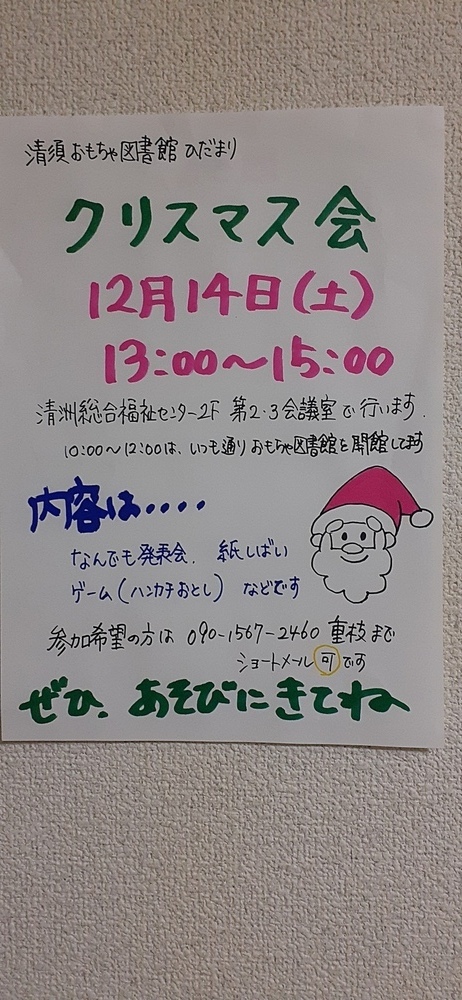 清須おもちゃ図書館 ひだまり
クリスマス会
12月14日(土)
13:00〜15:00
清洲総合福祉センター2F 第2・3会議室で行います.
10:00〜12:00は、いつも通りおもちゃ図書館を開館してます
内容は・・・・
なんでも発表会. 紙しばい
ゲーム(ハンカチおとし) などです
参加希望の方は 090-1567-2460 重枝まで
ショートメール 可 です
ぜひ. あそびにきてね